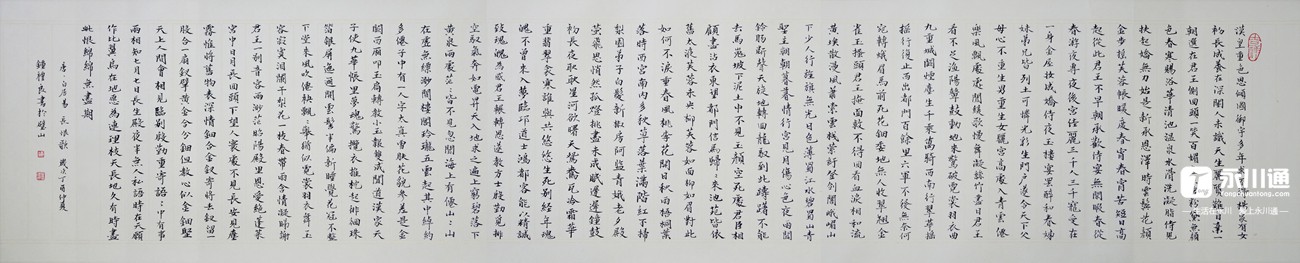 漢皇重色思傾國御宇多年求不得楊家有女
初長成養在深閨人未識天生麗質難自棄一
朝選在君王側回頭一笑百媚生六宮粉黛無顏
色春寒賜浴華清池溫泉水滑洗凝脂侍兒
扶起嬌無力始是新承恩澤時雲鬢花顏
金步搖芙蓉帳暖度春宵春宵苦短日高
起從此君王不早朝承歡侍宴無閒暇春從
春遊夜專夜後宮佳麗三千人三千寵愛在
一身金屋妝成嬌侍夜玉樓宴罷醉和春姊
妹弟兄皆列土可憐光彩生門戶遂令天下父
母心不重生男重生女驪宮高處入青雲仙
樂風飄處處聞緩歌慢舞凝絲竹盡日君王
看不足漁陽鼙鼓動地來驚破霓裳羽衣曲
九重城闕煙塵生千乘萬騎西南行翠華搖
搖行復止西出都門百餘里六軍不發無奈何
宛轉蛾眉馬前死花鈿委地無人收翠翹金
雀玉搔頭君王掩面救不得回看血淚相和流
黃埃散漫風蕭索雲棧縈紆登劍閣峨嵋山
下少人行旌旗無光日色薄蜀江水碧蜀山青
聖主朝朝暮暮情行宮見月傷心色夜雨聞
鈴腸斷聲天旋地轉迴龍馭到此躊躇不能
去馬嵬坡下泥土中不見玉顏空死處君臣相
顧盡沾衣東望都門信馬歸々來池苑皆依
舊太液芙蓉未央柳芙蓉如面柳如眉對此
如何不淚垂春風桃李花開日秋雨梧桐葉
落時西宮南內多秋草落葉滿階紅不掃
梨園弟子白髮新椒房阿監青娥老夕殿
螢飛思悄然孤燈挑盡未成眠遲遲鐘鼓
初長夜耿耿星河欲曙天鴛鴦瓦冷霜華
重翡翠衾寒誰與共悠悠生死別經年魂
魄不曾來入夢臨邛道士鴻都客能以精誠
致魂魄為感君王輾轉思遂教方士殷勤覓排
空馭氣奔如電昇天入地求之遍上窮碧落下
黃泉兩處茫々皆不見忽聞海上有仙山々
在虛無縹緲間樓閣玲瓏五雲起其中綽約
多仙子中有一人字太真雪膚花貌參差是金
闕西廂叩玉扃轉教小玉報雙成聞道漢家天
子使九華帳里夢魂驚攬衣推枕起徘徊珠
箔銀屏迤邐開雲鬢半偏新睡覺花冠不整
下堂來風吹仙袂飄飄舉猶似霓裳羽衣舞玉
容寂寞淚闌干梨花一枝春帶雨含情凝睇謝
君王一別音容兩渺茫昭陽殿里恩愛絕蓬萊
宮中日月長回頭下望人寰處不見長安見塵
霧惟將舊物表深情鈿合金釵寄將去釵留一
股合一扇釵擘黃金合分鈿但教心似金鈿堅
天上人間會相見臨別殷勤重寄詞々中有誓
兩相知七月七日長生殿夜半無人私語時在天願
作比翼鳥在地願為連理枝天長地久有時盡
此恨綿綿無盡期
唐 白居易 長恨歌
永川通
生活在永川 爱上永川通